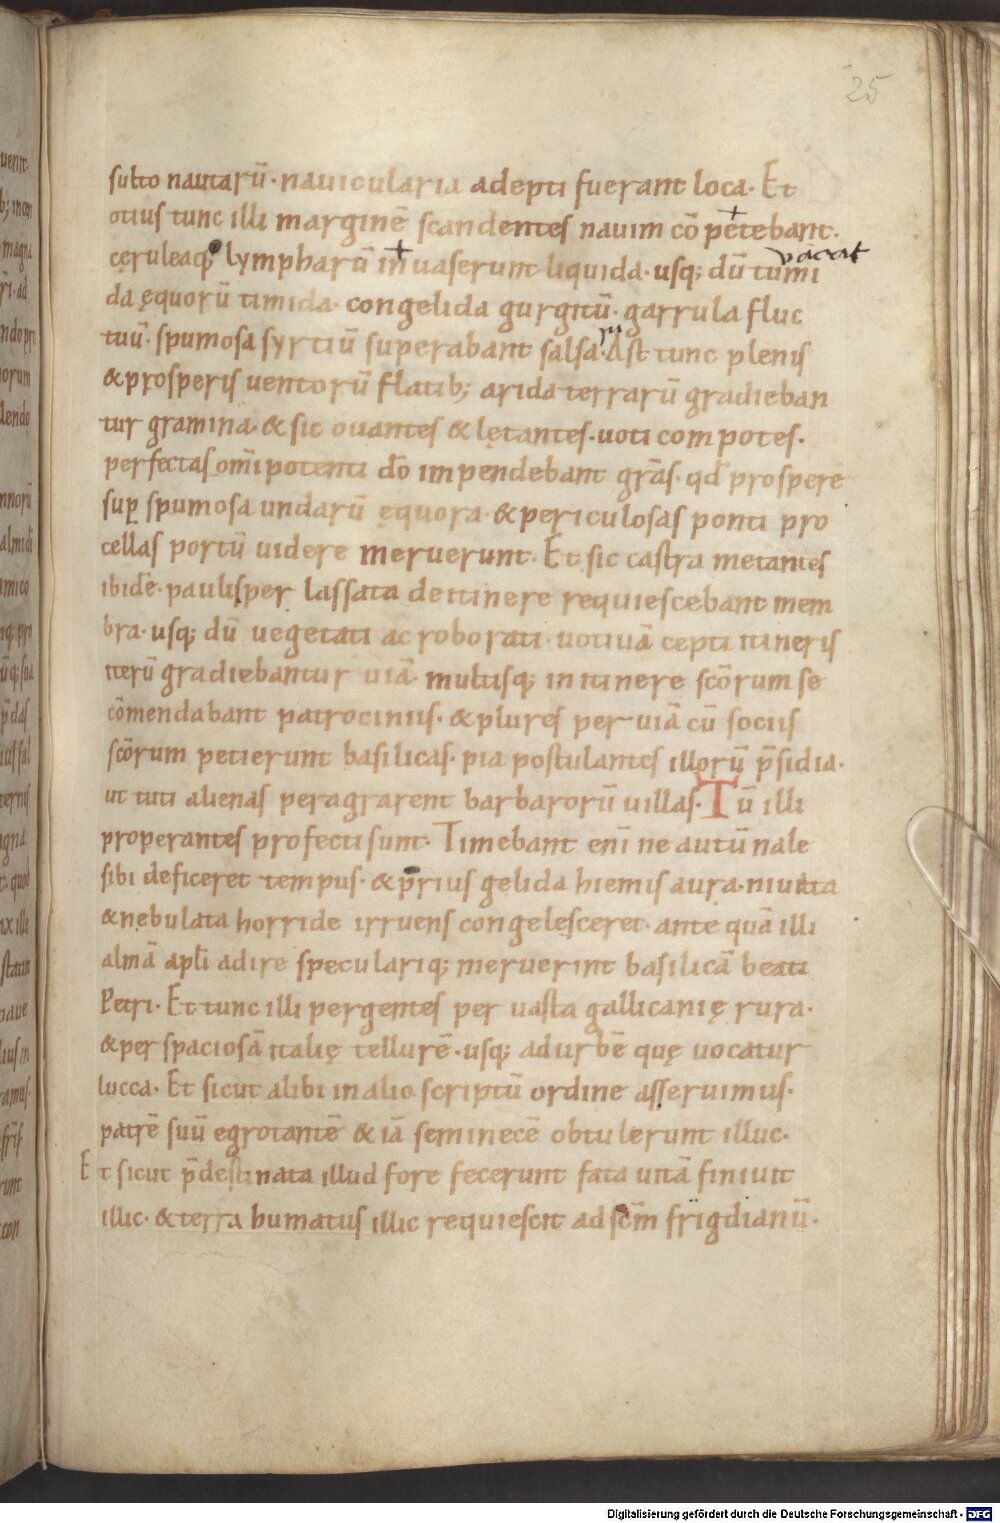 25
subito nautarū· navicularia adepti fuerant loca. Et
otius tunc illi marginē scandentes navim cō petebant.
vacat
cęruleaq; lympharū invaserunt liquida· usq; dū tumi
da ęquorū timida· congelida gurgitū· garrula fluc
tuū· spumosa syrtiū superabant salsa· Ast tunc plenis
& prosperis ventorū flatib; arida terrarū gradieban
tur gramina· & sic ovantes & lętantes· voti compotes·
perfectas om̄ipotenti dō impendebant grās· qd̄ prospere
sup spumosa undarū ęquora· & periculosas ponti pro
cellas portū videre meruerunt· Et sic castra metantes
ibidē· paulisper lassata detinere requiescebant mem
bra· usq; dū vegetati ac roborati· votivā cepti itineris
iterū gradiebantur viā· multisq; in itinere scōrum se
cōmendabant patrociniis· & plures per viā cū sociis
scōrum petierunt basilicas· pia postulantes illorū p̄sidia·
ut tuti alienas peragrarent barbarorū villas· Tū illi
properantes profecti sunt· Timebant eni ne autūnale
sibi deficeret tempus· & prius gelida hiemis aura· nivata
& nebulata horride irruens congelesceret· ante quā illi
almā apli adire specularíq; meruerint basilicā beati
Petri· Et tunc illi pergentes per vasta gallicanię rura·
& per spaciosā italię tellurē· usq; ad urbē quę vocatur
lucca· Et sicut alibi in alio scriptū ordine asseruimus·
patrē suū egrotantē & iā seminecē obtulerunt illuc·
Et sicut p̄destinata illud fore fecerunt fata vitā finivit
illic· & terra humatus illic requiescit ad scm̄ frigdianū·
Digitalisierung gefördert durch die Deutsche Forschungsgemeinschaft - DFG